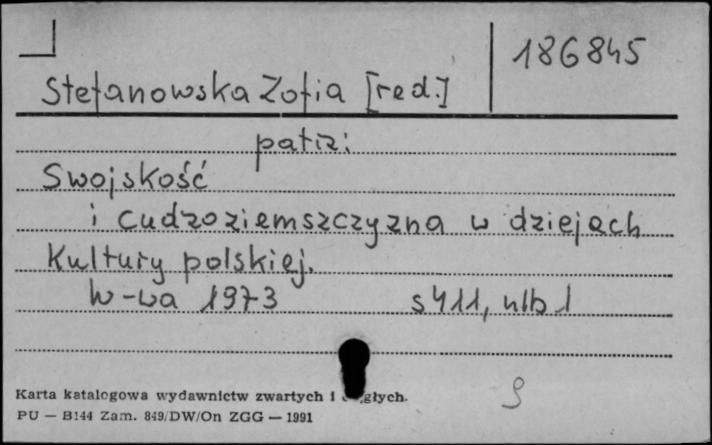 186845
Stefanowska Zofia [red.]
patrz:
Swojskość
i cudzoziemszczyzna w dziejach
Kultury polskiej.
W-wa 1973 s 411, nlb 1
Karta katalogowa wydawnictw zwartych i głych.
PU — B144 Zam. 849/DW/On ZGG — 1991